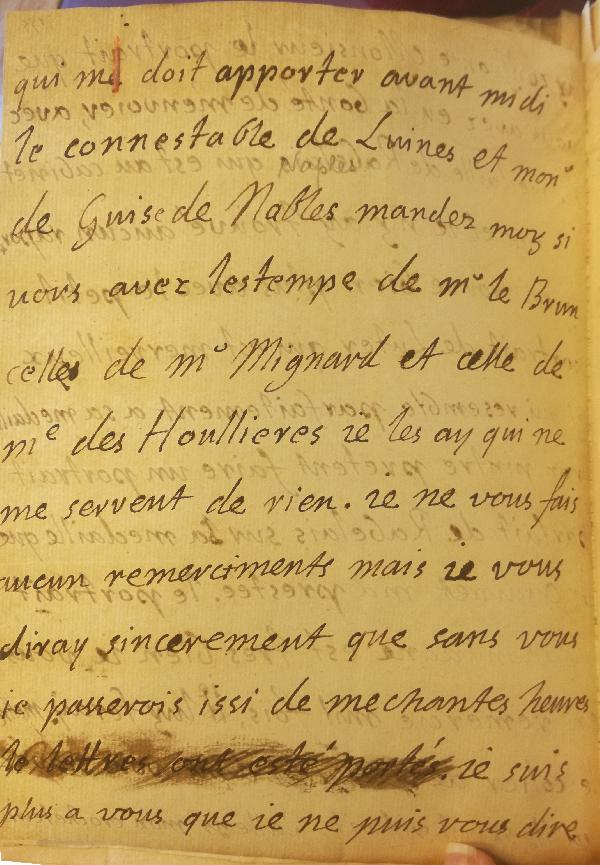 qui me doit apporter avant midi
le connestable de Luines et monr
de Guise de Nables mandez moy si
vous avez lestempe de mr le Brun
celles de mr Mignard et celle de
me des Houllieres ie les ay qui ne
me servent de rien. ie ne vous fais
aucun remerciments mais ie vous
diray sincerement que sans vous
ie passerois issi de mechantes heures
le lettres ont esté portés. ie suis
plus a vous que ie ne puis vous dire